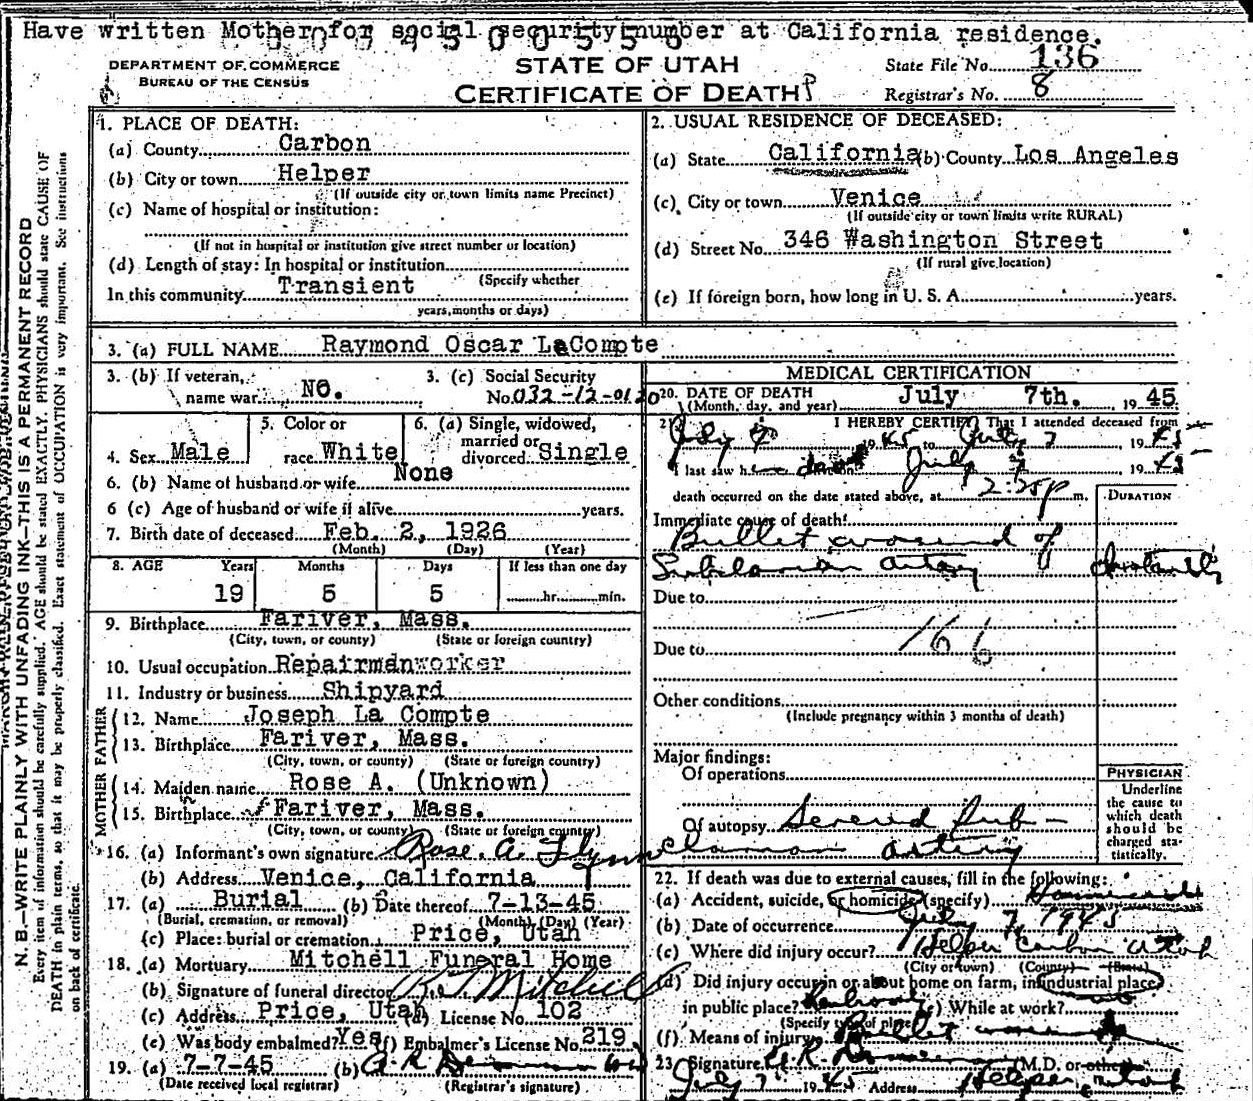 Have written Mother for social security number at California residence.
DEPARTMENT OF COMMERCE
BUREAU OF THE CENSUS
STATE OF UTAH
CERTIFICATE OF DEATH
State File No. 136
Registrar's No. 8
N. B.—WRITE PLAINLY WITH UNFADING INK—THIS IS A PERMANENT RECORD
Every item of information should be carefully supplied. AGE should be stated EXACTLY. PHYSICIANS should state CAUSE OF
DEATH in plain terms, so that it may be properly classified. Exact statement of OCCUPATION is very important. See instructions
on back of certificate.
1. PLACE OF DEATH:
(a) County Carbon
(b) City or town Helper
(If outside city or town limits name Precinct)
(c) Name of hospital or institution:
(If not in hospital or institution give street number or location)
(d) Length of stay: In hospital or institution
(Specify whether
In this community Transient
years, months or days)
2. USUAL RESIDENCE OF DECEASED:
(a) State California (b) County Los Angeles
(c) City or town Venice
(If outside city or town limits write RURAL)
(d) Street No. 346 Washington Street
(If rural give location)
(e) If foreign born, how long in U. S. A. years.
3. (a) FULL NAME Raymond Oscar LeCompte
3. (b) If veteran, name war No.
3. (c) Social Security No. 032-12-0120
4. Sex Male
5. Color or race White
6. (a) Single, widowed, married or divorced Single
6. (b) Name of husband or wife None
6 (c) Age of husband or wife if alive years.
7. Birth date of deceased Feb. 2, 1926
(Month) (Day) (Year)
8. AGE Years Months Days If less than one day
19 5 5 hr. min.
9. Birthplace Fariver, Mass.
(City, town, or county) (State or foreign country)
10. Usual occupation Repairmanworker
11. Industry or business Shipyard
FATHER
12. Name Joseph La Compte
13. Birthplace Fariver, Mass.
(City, town, or county) (State or foreign country)
MOTHER
14. Maiden name Rose A. (Unknown)
15. Birthplace Fariver, Mass.
(City, town, or county) (State or foreign country)
16. (a) Informant's own signature Rose. A. Flynn
(b) Address Venice, California
17. (a) Burial (b) Date thereof 7-13-45
(Burial, cremation, or removal) (Month) (Day) (Year)
(c) Place: burial or cremation Price, Utah
18. (a) Mortuary Mitchell Funeral Home
(b) Signature of funeral director Mitchell
(c) Address Price, Utah (d) License No. 102
(e) Was body embalmed? Yes (f) Embalmer's License No. 219
19. (a) 7-7-45 (b)
(Date received local registrar) (Registrar's signature)
MEDICAL CERTIFICATION
20. DATE OF DEATH
(Month, day, and year) July 7th. , 1945
21. I HEREBY CERTIFY That I attended deceased from
July 7 1945 to July 7 1945
I last saw h July 7 1945
death occurred on the date stated above, at 2:25 p m.
DURATION
Immediate cause of death
Bullet wound of
Subclavian artery
Instantly
Due to
166
Due to
Other conditions
(Include pregnancy within 3 months of death)
Major findings:
Of operations
Of autopsy Severed Sub-
clavian artery
PHYSICIAN
Underline
the cause to
which death
should be
charged sta-
tistically.
22. If death was due to external causes, fill in the following:
(a) Accident, suicide, or homicide (specify) Homicide
(b) Date of occurrence July 7, 1945
(c) Where did injury occur? Helper Carbon Utah
(City or town) (County) (State)
(d) Did injury occur in or about home on farm, in industrial place,
in public place? (e) While at work?
(Specify type of place)
(f) Means of injury Bullet
23. Signature M.D. or other
July 7 1945 Address Helper, Utah